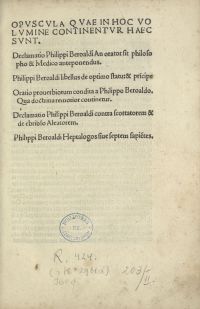 OPVSCVLA QVAE IN HOC VO
LVMINE CONTINENTVR HAEC
SVNT.
Declamatio Philippi Beroaldi An orator sit philoso
pho & Medico anteponendus.
Philippi Beroaldi libellus de optimo statu & pricipe
Oratio prouerbiorum condita a Philippo Beroaldo.
Qua doctrina remotior continetur.
Declamatio Philippi Beroaldi contra scortatorem &
de ebrioso Aleatorem.
Philippi Beroaldi Heptalogos siue septem sapiētes.
R. 424.